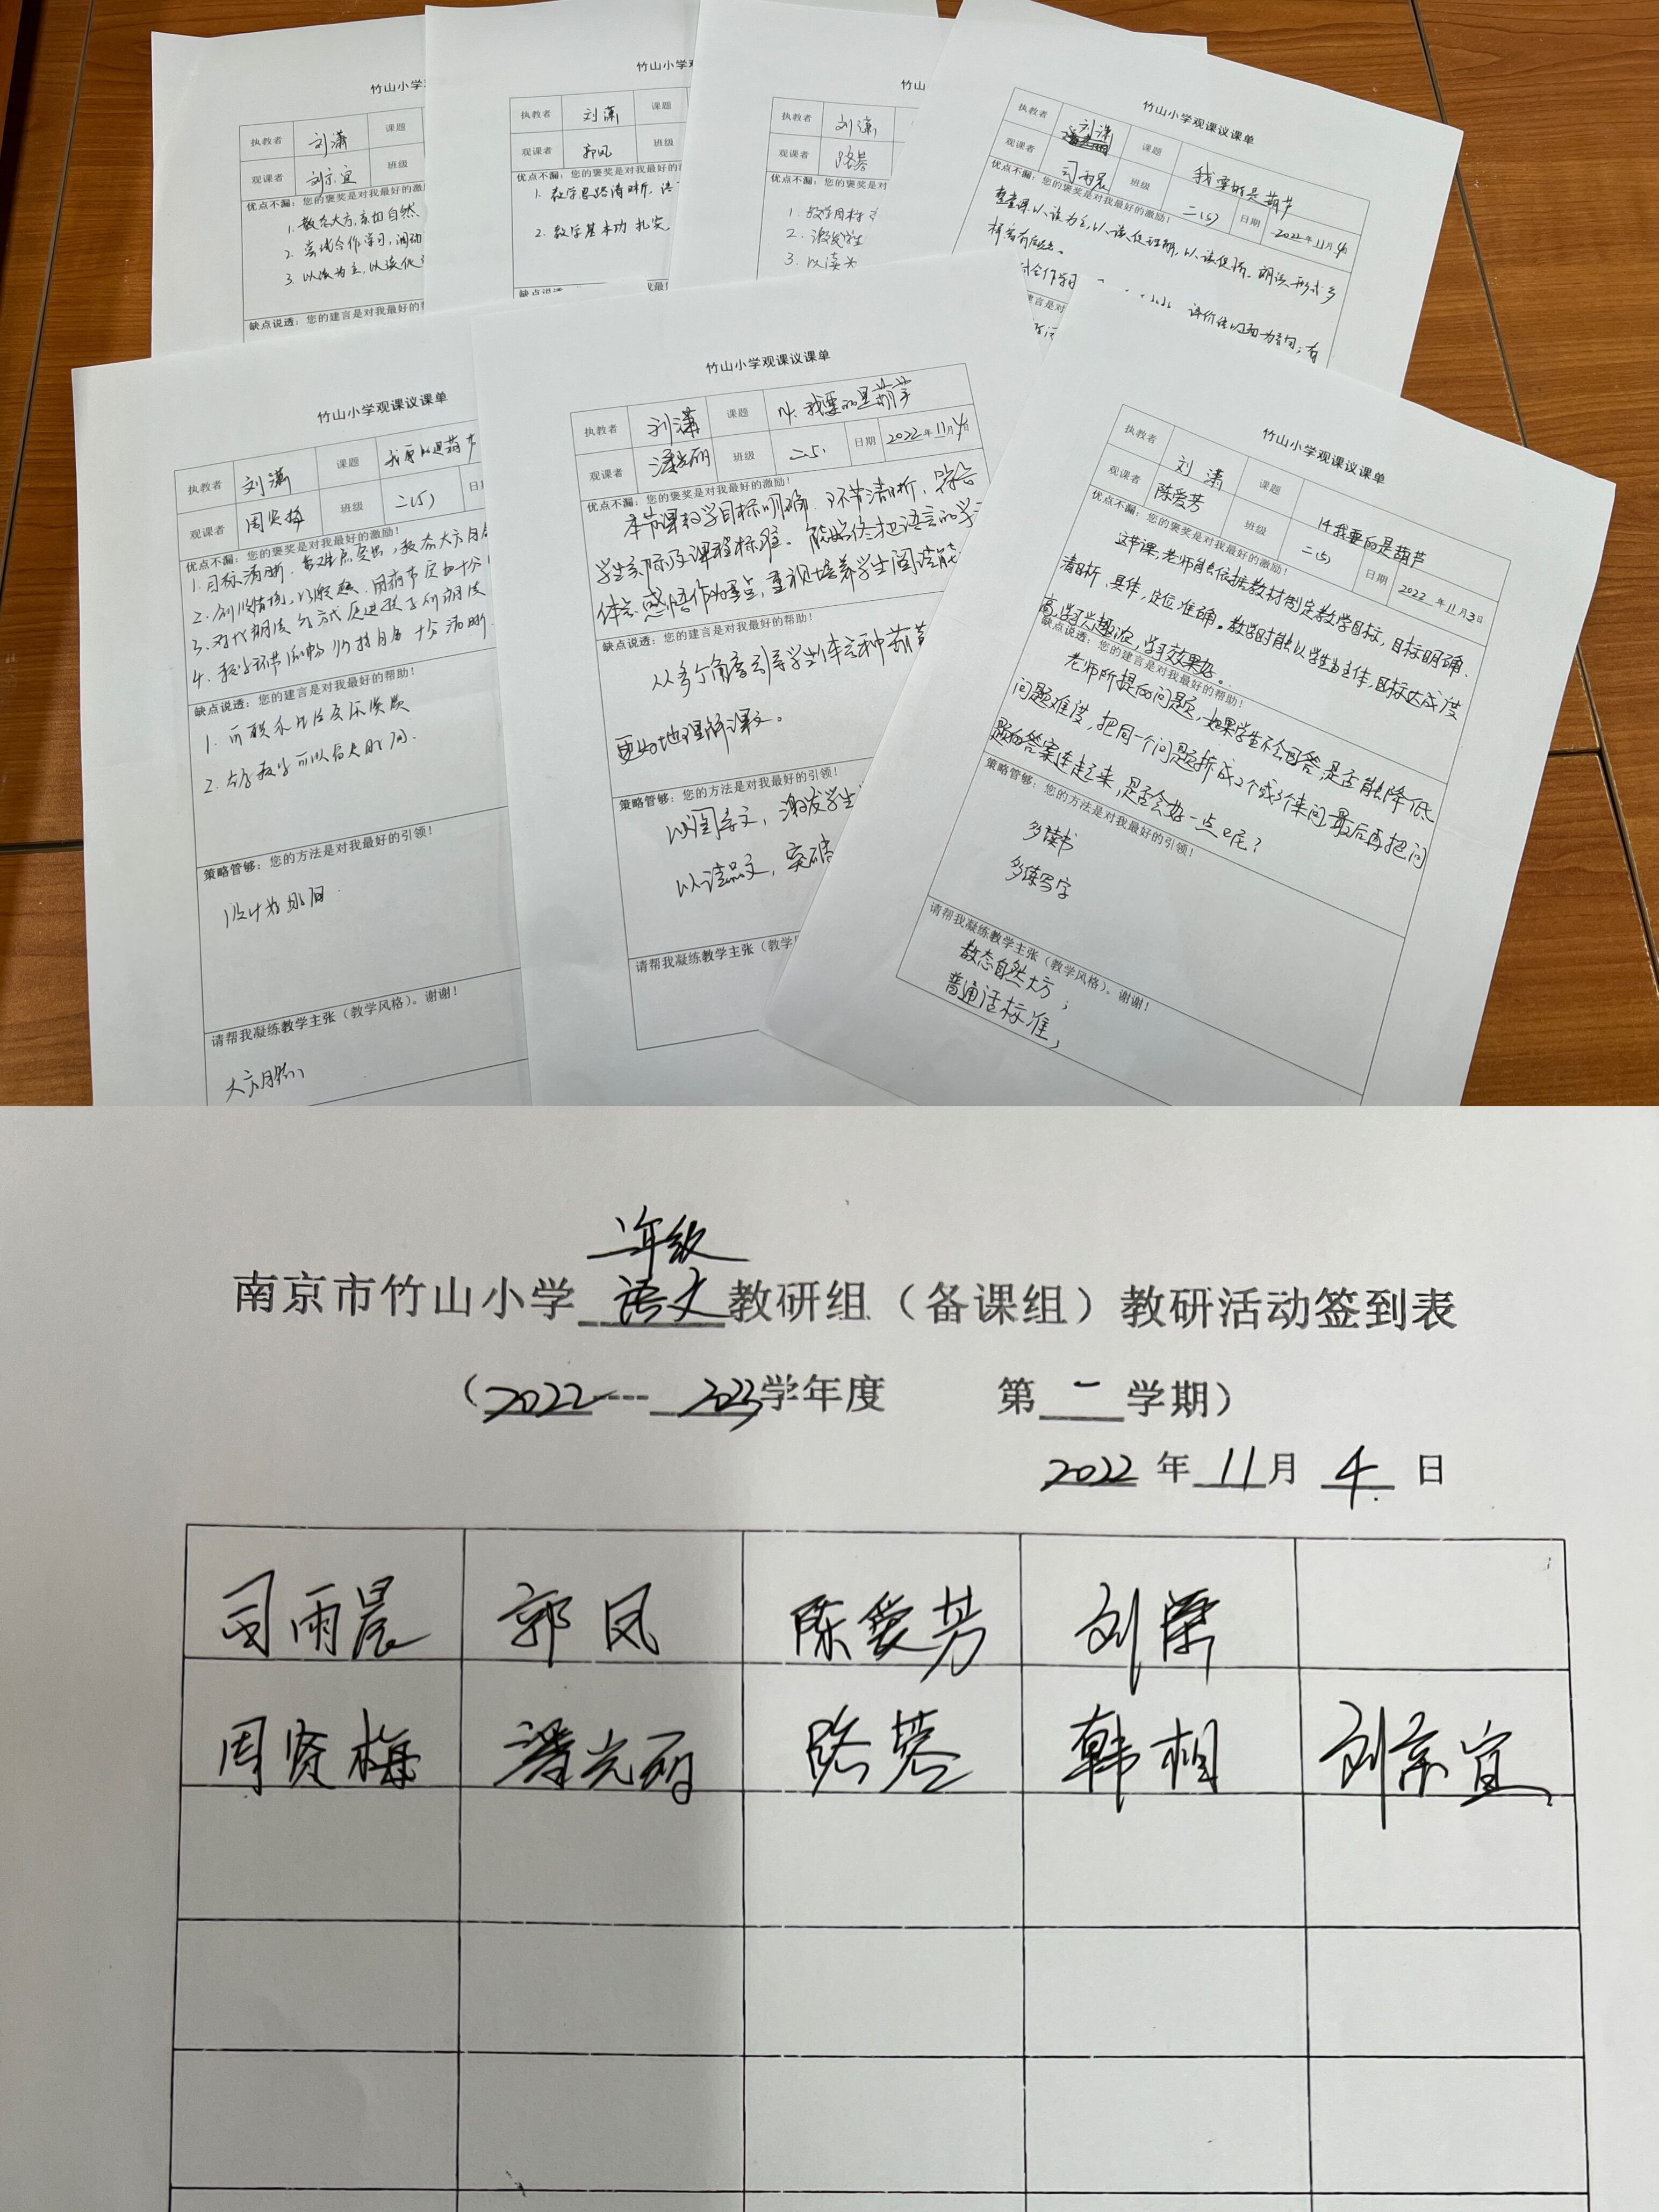 竹山小学
执教者 刘潇 课题
观课者 刘京宜 班级
优点不漏：您的褒奖是对我最好的激励
1. 教态大方，亲切自然、
2. 尝试合作学习，调动
3. 以读为主，以读促
缺点说透：您的建言是对我最好的
竹山小学
执教者 刘潇 课题
观课者 郭凤 班级
优点不漏：您的褒奖是对我最好的
1. 教学思路清晰，语
2. 教学基本功扎实，
竹山
执教者 刘潇
观课者 路芸
优点不漏：您的褒奖是对
1. 教学目标
2. 激发学生
3. 以读为
竹山小学观课议课单
执教者 刘潇 课题 我要的是葫芦
观课者 司雨晨 班级 二(5) 日期 2022年11月4日
优点不漏：您的褒奖是对我最好的激励！
整堂课以读为主，以读促理解，以读促悟，朗读形式多
样
竹山小学观课议课单
执教者 刘潇 课题 我要的是葫芦
观课者 周贤梅 班级 二(5)
优点不漏：您的褒奖是对我最好的激励！
1. 目标清晰，重难点突出，教态大方自然
2. 创设情境，
3.
4. 教学环节流畅
缺点说透：您的建言是对我最好的帮助！
1. 可联系生活
2.
策略管够：您的方法是对我最好的引领！
请帮我凝练教学主张（教学风格）。谢谢！
竹山小学观课议课单
执教者 刘潇 课题 14. 我要的是葫芦
观课者 潘光丽 班级 二5. 日期 2022年11月4日
优点不漏：您的褒奖是对我最好的激励！
本节课教学目标明确，环节清晰，符合
学生实际及课程标准。能始终把语言的学习
体会、感悟作为重点，重视培养学生阅读能
缺点说透：您的建言是对我最好的帮助！
从多个角度引导学生体会种葫芦
更好地理解课文。
策略管够：您的方法是对我最好的引领！
以图导文，激发学生
以读品文，突破
请帮我凝练教学主张（教学
竹山小学观课议课单
执教者 刘潇 课题 14 我要的是葫芦
观课者 陈爱芳 班级 二(5) 日期 2022年11月3日
优点不漏：您的褒奖是对我最好的激励！
这节课，老师能依据教材制定教学目标，目标明确、
清晰，具体，定位准确。教学时能以学生为主体，目标达成度
高，学习兴趣浓，学习效果好。
缺点说透：您的建言是对我最好的帮助！
老师所提的问题，如果学生不会回答，是否能降低
问题难度，把同一个问题拆成2个或3个来问，最后再把问
题的答案连起来，是否会好一点呢？
策略管够：您的方法是对我最好的引领！
多读书
多练写字
请帮我凝练教学主张（教学风格）。谢谢！
教态自然大方；
普通话标准；
二年级
南京市竹山小学 语文 教研组（备课组）教研活动签到表
（2022---2023学年度 第一学期）
2022年11月4日
司雨晨 郭凤 陈爱芳 刘潇
周贤梅 潘光丽 路芸 韩相 刘京宜